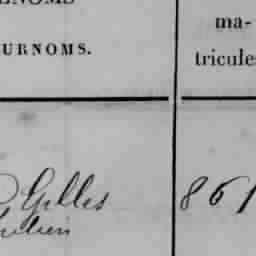 ENOMS
URNOMS.
ma-
tricules
Gilles
861
Julien